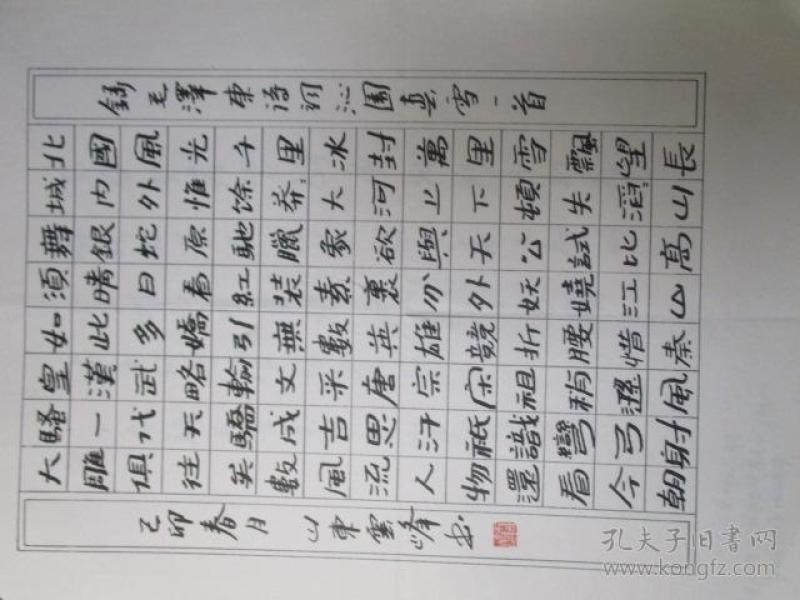 錄毛澤東詩詞沁園春雪一首
北國風光千里冰封萬里雪飄望長
城內外惟馀莽:大河上下頓失滔:山
舞銀蛇原馳臘象欲與天公試比高
須晴日看紅裝素裹分外妖嬈江山
如此多嬌引無數英雄競折腰惜秦
皇漢武略輸文采唐宗宋祖稍遜風
騷一代天驕成吉思汗祗識彎弓射
大雕俱往矣數風流人物還看今朝
己卯春月 山東雲峰书
孔夫子旧书网
www.kongfz.com